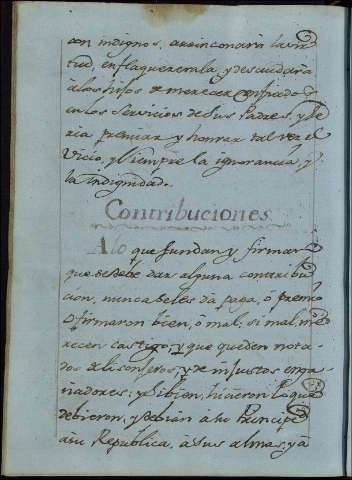 son indignos, arrinconaria la vir
tud, enflaquecerala, y descuidaria
à los hijos de merecer confiado
en los servicios de sus Padres, y se
ria premiar y honrar tal vez el
Vicio, y siempre la ignorancia, y
la indignidad.
Contribuciones
A lo que fundan y firmar
que se debe dar alguna contribu
ción, nunca se les dà paga, ò premio
ò firmaron bien, ò mal; si mal, me
recen castigo, y que queden nota
dos de lisonjeros, y de injustos enga
ñadores; y si bien, hicieron lo que
debieron, y debian à su Principe
à su Republica, à sus almas, y à